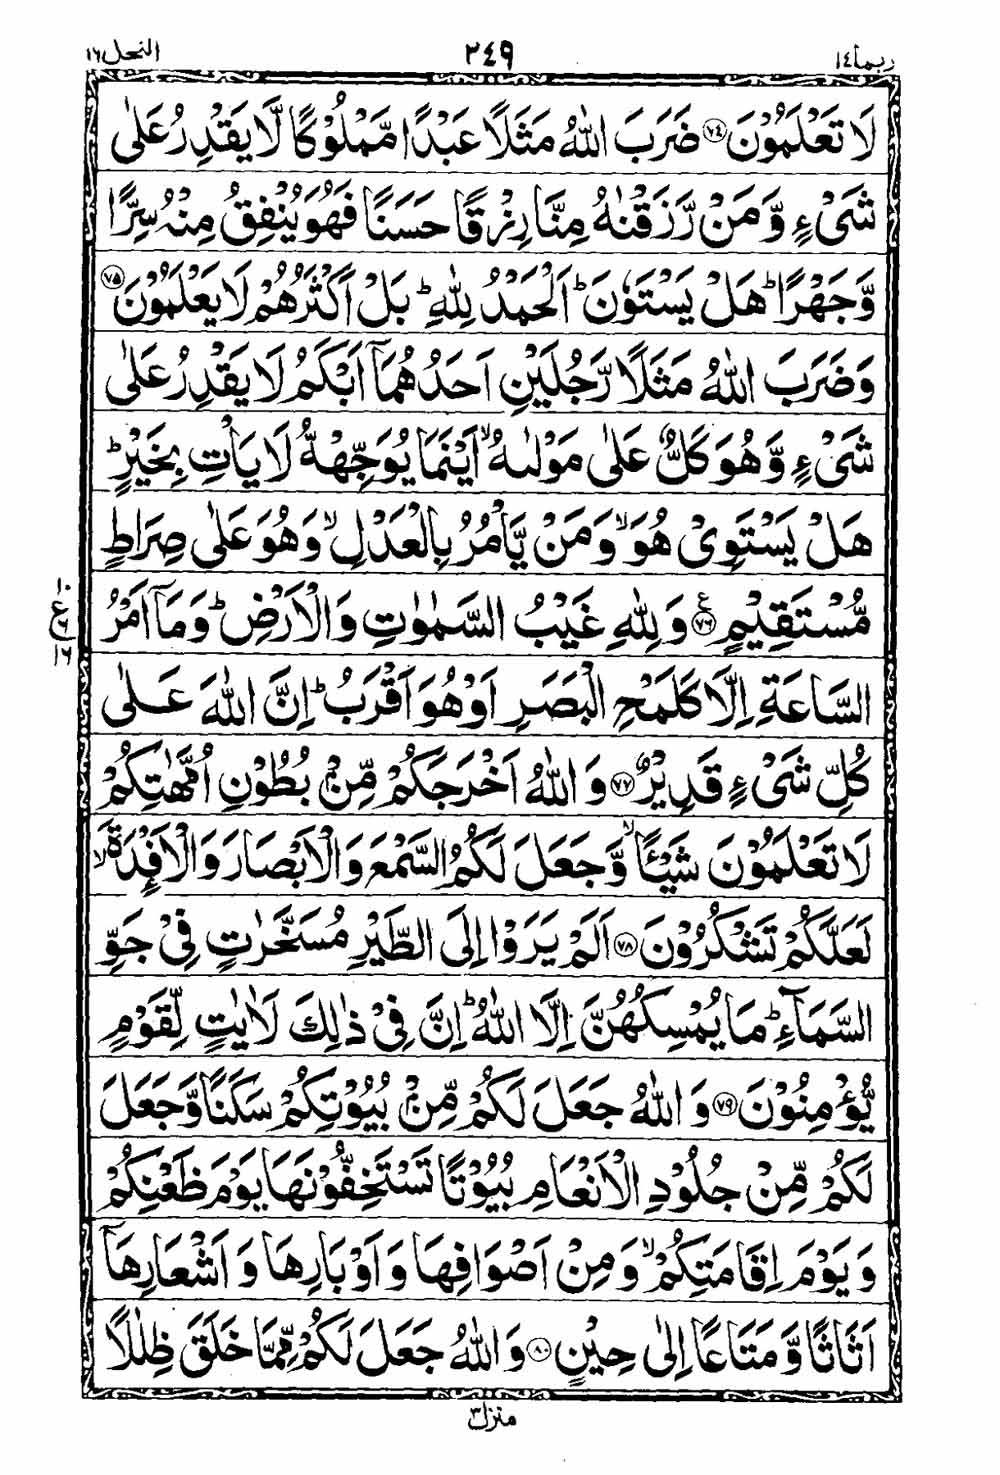 ربما ١٤ ٢٤٩ النحل ١٦
لَا تَعْلَمُوْنَ ﴿٧٤﴾ ضَرَبَ اللّٰهُ مَثَلًا عَبْدًا مَّمْلُوْكًا لَّا يَقْدِرُ عَلٰى
شَىْءٍ وَّمَنْ رَّزَقْنٰهُ مِنَّا رِزْقًا حَسَنًا فَهُوَ يُنْفِقُ مِنْهُ سِرًّا
وَّجَهْرًا ؕ هَلْ يَسْتَوٗنَ ؕ اَلْحَمْدُ لِلّٰهِ ؕ بَلْ اَكْثَرُهُمْ لَا يَعْلَمُوْنَ ﴿٧٥﴾
وَضَرَبَ اللّٰهُ مَثَلًا رَّجُلَيْنِ اَحَدُهُمَاۤ اَبْكَمُ لَا يَقْدِرُ عَلٰى
شَىْءٍ وَّهُوَ كَلٌّ عَلٰى مَوْلٰىهُ ۙ اَيْنَمَا يُوَجِّهْهُّ لَا يَاْتِ بِخَيْرٍ ؕ
هَلْ يَسْتَوِىْ هُوَ ۙ وَمَنْ يَّاْمُرُ بِالْعَدْلِ ۙ وَهُوَ عَلٰى صِرَاطٍ
مُّسْتَقِيْمٍ ﴿٧٦﴾ ع وَلِلّٰهِ غَيْبُ السَّمٰوٰتِ وَالْاَرْضِ ؕ وَمَاۤ اَمْرُ
١٠ ع ٦ ١٦
السَّاعَةِ اِلَّا كَلَمْحِ الْبَصَرِ اَوْ هُوَ اَقْرَبُ ؕ اِنَّ اللّٰهَ عَلٰى
كُلِّ شَىْءٍ قَدِيْرٌ ﴿٧٧﴾ وَاللّٰهُ اَخْرَجَكُمْ مِّنْۢ بُطُوْنِ اُمَّهٰتِكُمْ
لَا تَعْلَمُوْنَ شَيْـًٔا ۙ وَّجَعَلَ لَكُمُ السَّمْعَ وَالْاَبْصَارَ وَالْاَفْـِٕدَةَ ۙ
لَعَلَّكُمْ تَشْكُرُوْنَ ﴿٧٨﴾ اَلَمْ يَرَوْا اِلَى الطَّيْرِ مُسَخَّرٰتٍ فِىْ جَوِّ
السَّمَآءِ ؕ مَا يُمْسِكُهُنَّ اِلَّا اللّٰهُ ؕ اِنَّ فِىْ ذٰلِكَ لَاٰيٰتٍ لِّقَوْمٍ
يُّؤْمِنُوْنَ ﴿٧٩﴾ وَاللّٰهُ جَعَلَ لَكُمْ مِّنْۢ بُيُوْتِكُمْ سَكَنًا وَّجَعَلَ
لَكُمْ مِّنْ جُلُوْدِ الْاَنْعَامِ بُيُوْتًا تَسْتَخِفُّوْنَهَا يَوْمَ ظَعْنِكُمْ
وَيَوْمَ اِقَامَتِكُمْ ۙ وَمِنْ اَصْوَافِهَا وَاَوْبَارِهَا وَاَشْعَارِهَاۤ
اَثَاثًا وَّمَتَاعًا اِلٰى حِيْنٍ ﴿٨٠﴾ وَاللّٰهُ جَعَلَ لَكُمْ مِّمَّا خَلَقَ ظِلٰلًا
منزل ٣